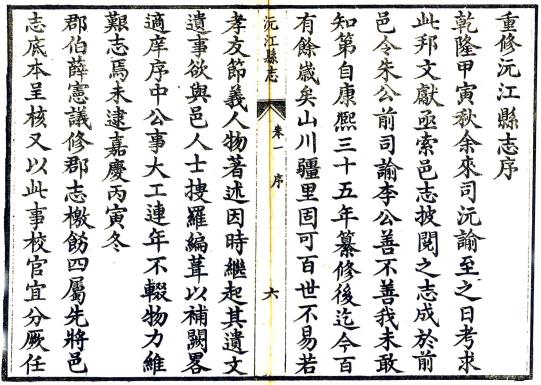 重修沅江縣志序
乾隆甲寅秋余來司沅諭至之日考求
此邦文獻亟索邑志披閱之志成於前
邑令朱公前司諭李公善不善我未敢
知第自康熙三十五年纂修後迄今百
有餘歲矣山川疆里固可百世不易若
沅江縣志
卷一 序
六
孝友節義人物著述因時繼起其遺文
遺事欲與邑人士搜羅編葺以補闕畧
適庠序中公事大工連年不輟物力維
艱志焉未逮嘉慶丙寅冬
郡伯薛憲議修郡志檄飭四屬先將邑
志底本呈核又以此事校官宜分厥任